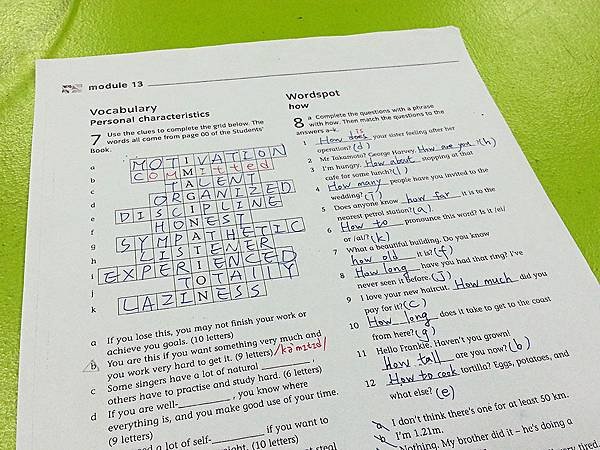 module 13
Vocabulary
Personal characteristics
7 Use the clues to complete the grid below. The
words all come from page 00 of the Students'
Book.
a MOTIVATION
b COMMItted
c TALENT
d ORGANIZED
e DISCIPLINE
f HONEST
g SYMPATHETIC
h LISTENER
i EXPERIENCED
j TOTALLY
k LAZINESS
a If you lose this, you may not finish your work or
achieve you goals. (10 letters)
b You are this if you want something very much and
you work very hard to get it. (9 letters) /kə'mɪtɪd/
c Some singers have a lot of natural ________,
others have to practise and study hard. (6 letters)
d If you are well-________, you know where
everything is, and you make good use of your time.
(9 letters)
need a lot of self-________ if you want to
weight. (10 letters)
Wordspot
how
8 a Complete the questions with a phrase
with how. Then match the questions to the
answers a–k.
is
1 How does your sister feeling after her
operation? (d)
2 Mr Takamoto? George Harvey. How are you (h)
3 I'm hungry. How about stopping at that
cafe for some lunch? (l)
4 How many people have you invited to the
wedding? (i)
5 Does anyone know how far it is to the
nearest petrol station? (a)
6 How to pronounce this word? Is it /ei/
or /aɪ/? (k)
7 What a beautiful building. Do you know
how old it is? (f)
8 How long have you had that ring? I've
never seen it before. (J)
9 I love your new haircut. How much did you
pay for it? (c)
10 How long does it take to get to the coast
from here? (g)
11 Hello Frankie. Haven't you grown!
How tall are you now? (b)
12 How to cook tortilla? Eggs, potatoes, and
what else? (e)
a I don't think there's one for at least 50 km.
b I'm 1.21m.
Nothing. My brother did it – he's doing a